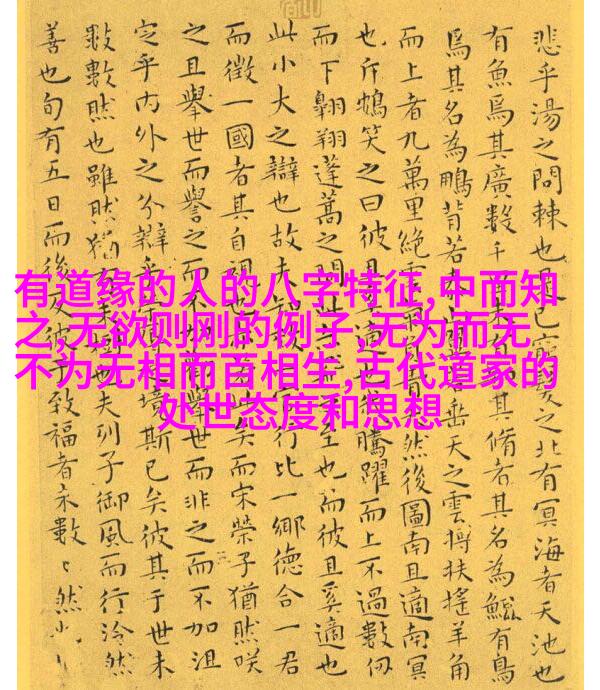 悲乎湯之問棘也已窮之北有冥海者天池也
有魚焉其廣數千其脩者其名為鯤有鳥
焉其名為鵬背若垂天之雲摶扶搖羊角
而上者九萬里絕雲然後圖南且適南冥
也斥鴳笑之曰彼騰躍而上不過數仞
而下翱翔蓬蒿之間至也而彼且奚適也
此小大之辯也故夫行比一鄉德合一君
而徵一國者其自矣而宋榮子猶然咲
之且舉世而譽之而不舉世而非之而不加沮
定乎內外之分辯乎境斯已矣彼其于世未
數數然也雖然猶也夫列子御風而行泠然
善也旬有五日而後反彼于致福者未數々然
有道缘的人的八字特征,中而知
之,无欲则刚的例子,无为而无
不为无相而百相生,古代道家的
处世态度和思想